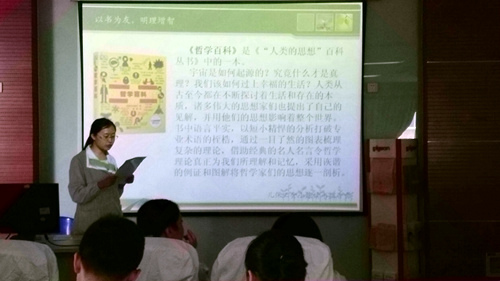 以书为友，明理增智
《哲学百科》是《“人类的思想”百科
丛书》中的一本。
宇宙是如何起源的？究竟什么才是真
理？我们该如何过上幸福的生活？人类从
古至今都在不断探讨着生活和存在的本
质，诸多伟大的思想家们也提出了自己的
见解，并用他们的思想影响着整个世界。
书中语言平实，以短小精悍的分析打破专
业术语的桎梏，通过一目了然的图表梳理
复杂的理论，借助经典的名人名言令哲学
理论真正为我们所理解和记忆，采用诙谐
的例证和图解将哲学家们的思想逐一剖析。
哲学百科
pigeon